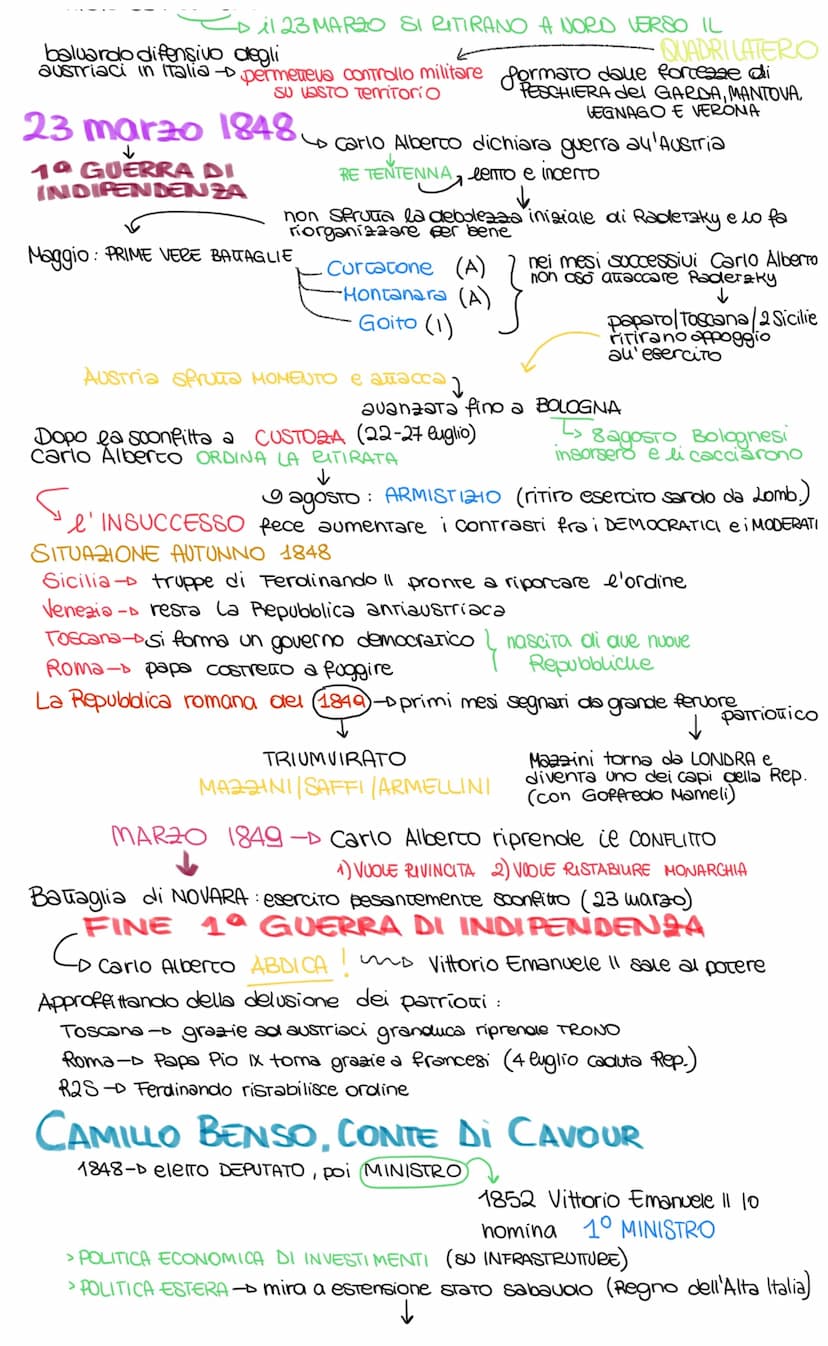 → il 23 MARZO SI RITIRANO A NORD VERSO IL
QUADRILATERO
baluardo difensivo degli
austriaci in Italia → permetteva controllo militare
su vasto territorio
formato dalle fortezze di
PESCHIERA del GARDA, MANTOVA,
LEGNAGO E VERONA
23 marzo 1848
→ Carlo Alberto dichiara guerra all'Austria
1ª GUERRA DI
INDIPENDENZA
RE TENTENNA, lento e incerto
non sfrutta la debolezza iniziale di Radetzky e lo fa
riorganizzare per bene
Maggio: PRIME VERE BATTAGLIE
Curtatone (A)
Montanara (A)
Goito (I)
nei mesi successivi Carlo Alberto
non osò attaccare Radetzky
papato/Toscana/2 Sicilie
ritirano appoggio
all'esercito
Austria sfrutta MOMENTO e attacca
avanzata fino a BOLOGNA
→ 8 agosto Bolognesi
insorsero e li cacciarono
Dopo la sconfitta a CUSTOZA (22-27 luglio)
Carlo Alberto ORDINA LA RITIRATA
9 agosto: ARMISTIZIO (ritiro esercito sardo da Lomb.)
l'INSUCCESSO fece aumentare i contrasti fra i DEMOCRATICI e i MODERATI
SITUAZIONE AUTUNNO 1848
Sicilia → truppe di Ferdinando II pronte a riportare l'ordine
Venezia → resta la Repubblica antiaustriaca
Toscana → si forma un governo democratico
Roma → papa costretto a fuggire
nascita di due nuove
Repubbliche
La Repubblica romana del 1849 → primi mesi segnati da grande fervore
patriottico
TRIUMVIRATO
MAZZINI/SAFFI/ARMELLINI
Mazzini torna da LONDRA e
diventa uno dei capi della Rep.
(con Goffredo Mameli)
MARZO 1849 → Carlo Alberto riprende il CONFLITTO
1) VUOLE RIVINCITA 2) VUOLE RISTABILIRE MONARCHIA
Battaglia di NOVARA: esercito pesantemente sconfitto (23 marzo)
FINE 1ª GUERRA DI INDIPENDENZA
→ Carlo Alberto ABDICA! → Vittorio Emanuele II sale al potere
Approfittando della delusione dei patrioti:
Toscana → grazie ad austriaci granduca riprende TRONO
Roma → Papa Pio IX torna grazie a francesi (4 luglio caduta Rep.)
R2S → Ferdinando ristabilisce ordine
CAMILLO BENSO, CONTE Di CAVOUR
1848 → eletto DEPUTATO, poi MINISTRO
1852 Vittorio Emanuele II lo
nomina 1º MINISTRO
> POLITICA ECONOMICA DI INVESTIMENTI (SU INFRASTRUTTURE)
> POLITICA ESTERA → mira a estensione stato sabaudo (Regno dell'Alta Italia)